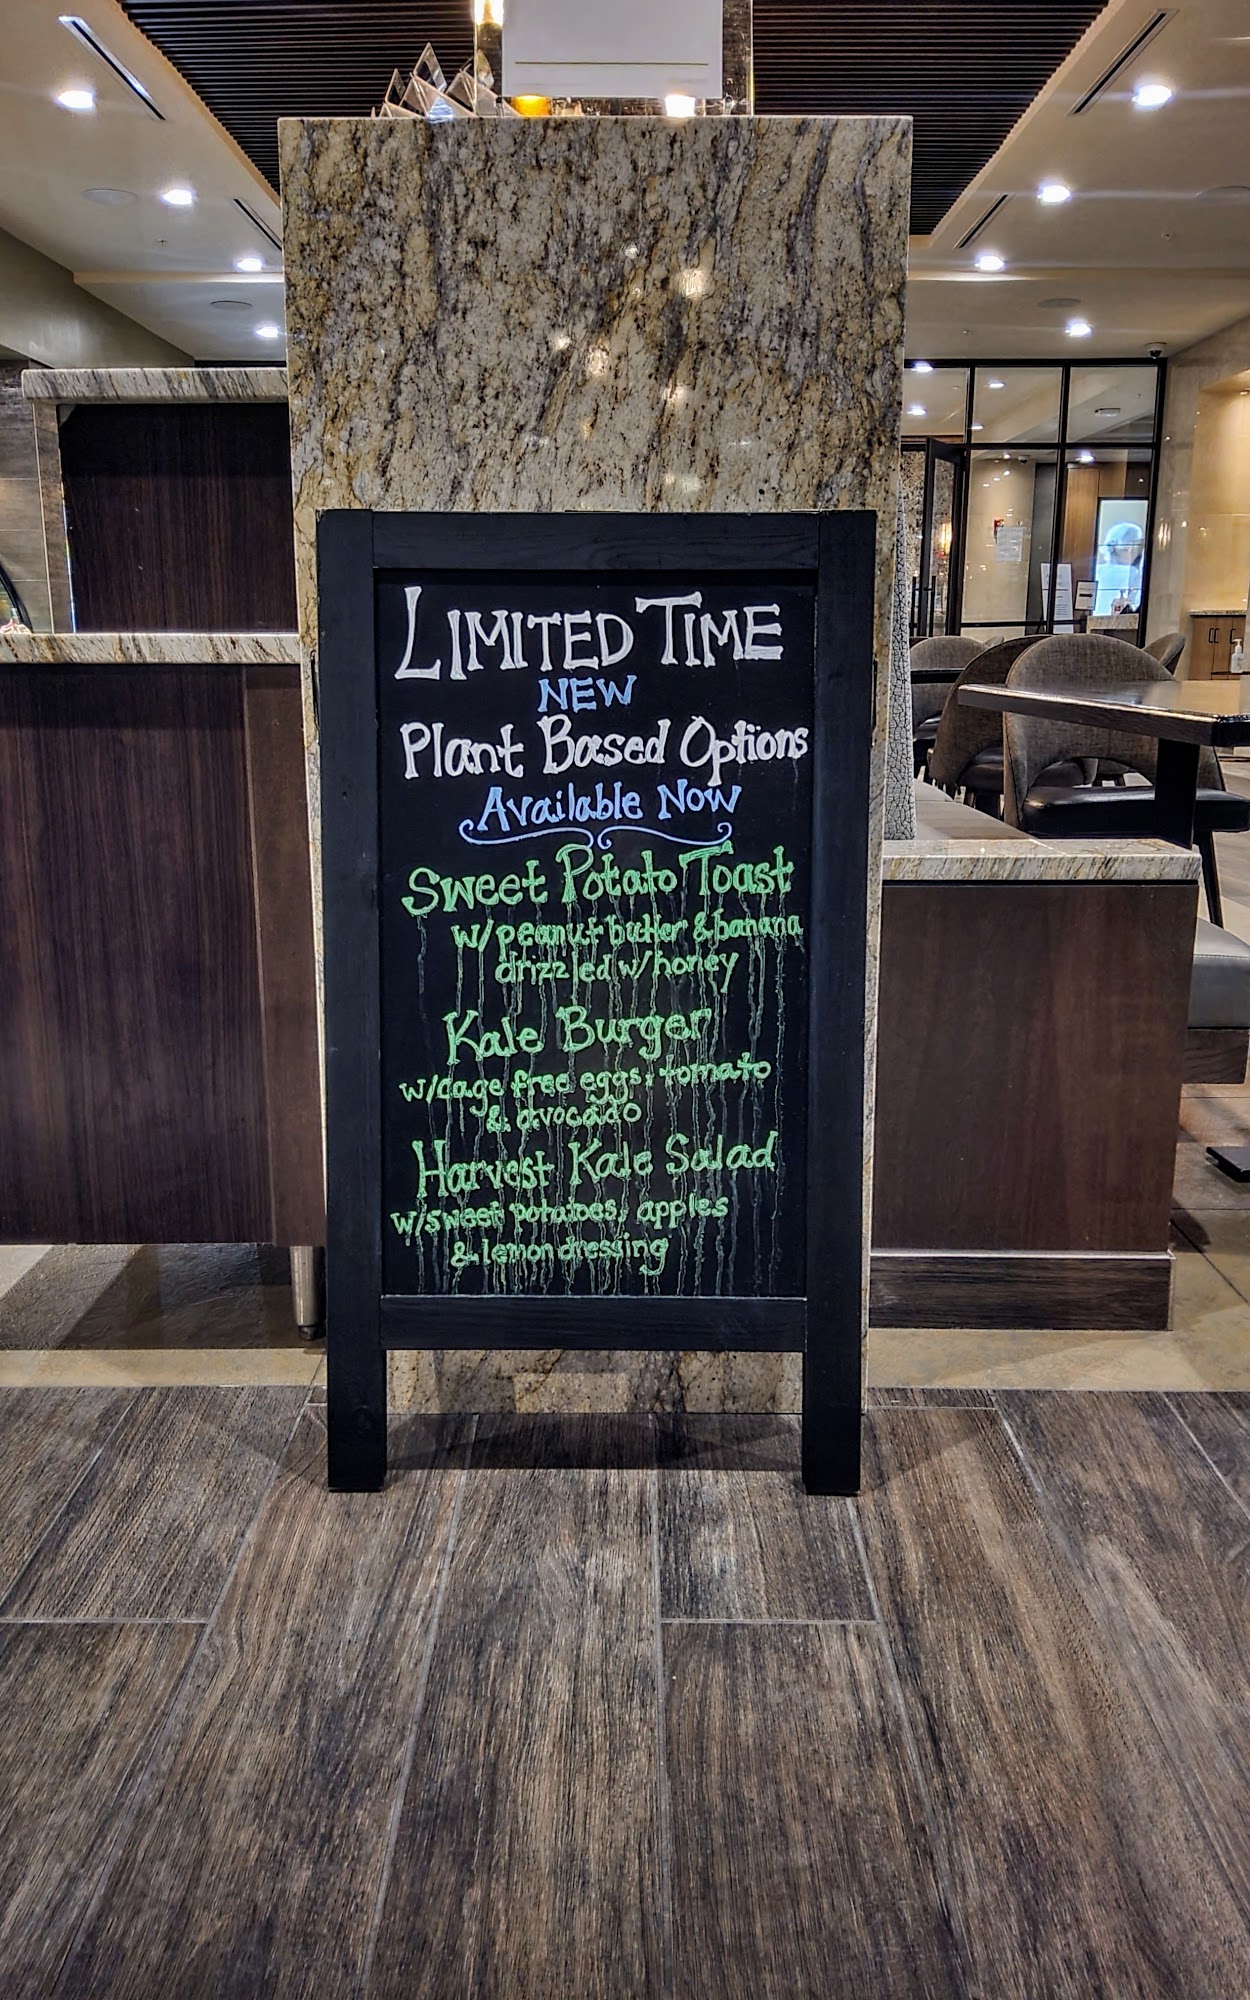 LIMITED TIME
NEW
Plant Based Options
Available Now
Sweet Potato Toast
w/peanut butter & banana
drizzled w/honey
Kale Burger
w/cage free eggs, tomato
& avocado
Harvest Kale Salad
w/sweet potatoes, apples
& lemon dressing